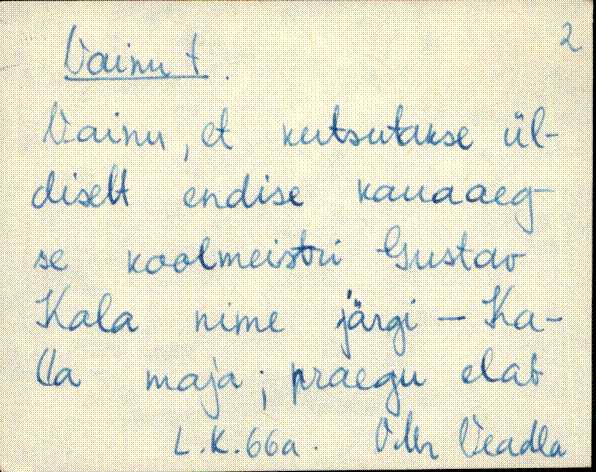 2
Vainu t.
Vainu, et kutsutakse ül-
diselt endise kauaaeg-
se koolmeistri Gustav
Kala nime järgi – Ka-
la maja; praegu elab
L.K. 66a. Veadla